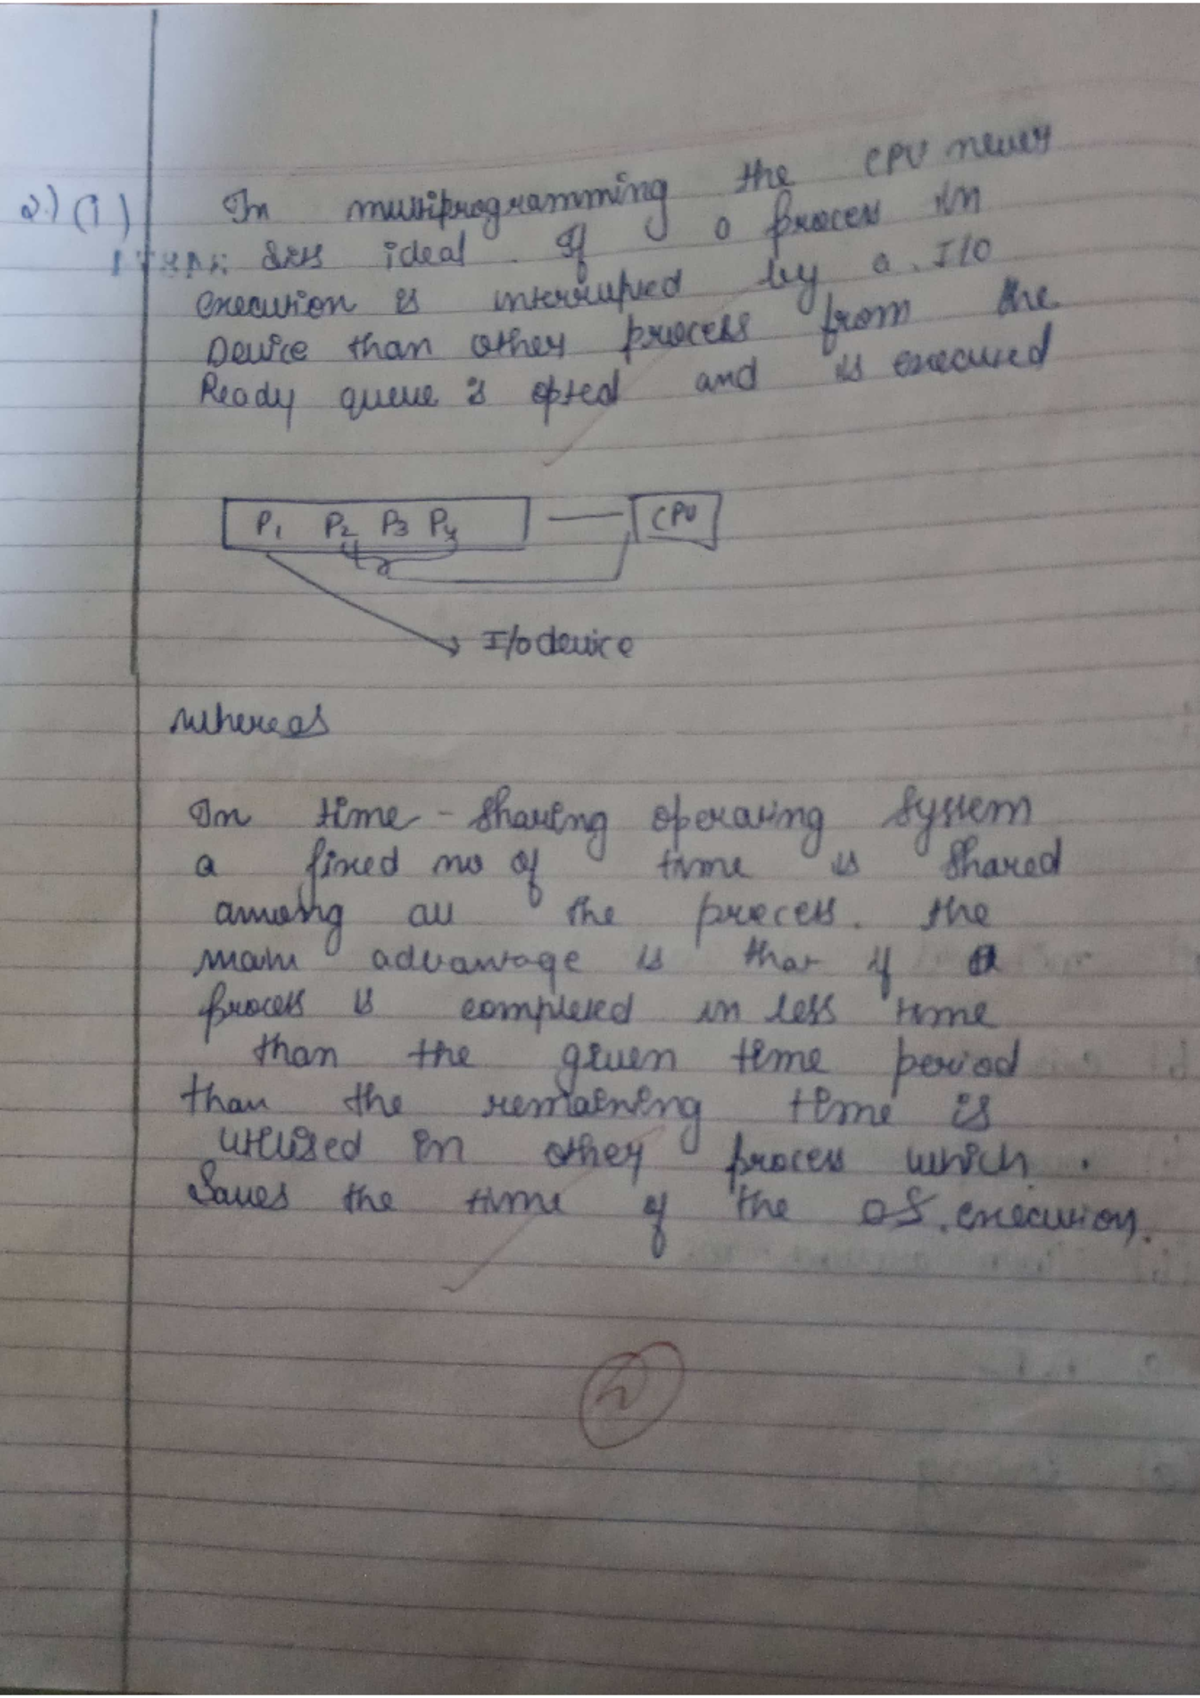 2.) (i) In multiprogramming the CPU never
sits ideal. If a process in
execution is interrupted by a I/O
Device than other process from the
Ready queue is opted and is executed
P1 P2 P3 P4 CPU
I/o device
whereas
In time - sharing operating system
a fixed no of time is shared
among all the process. the
main advantage is that if a
process is completed in less time
than the given time period
than the remaining time is
utilised in other process which
saves the time of the OS. execution.
2